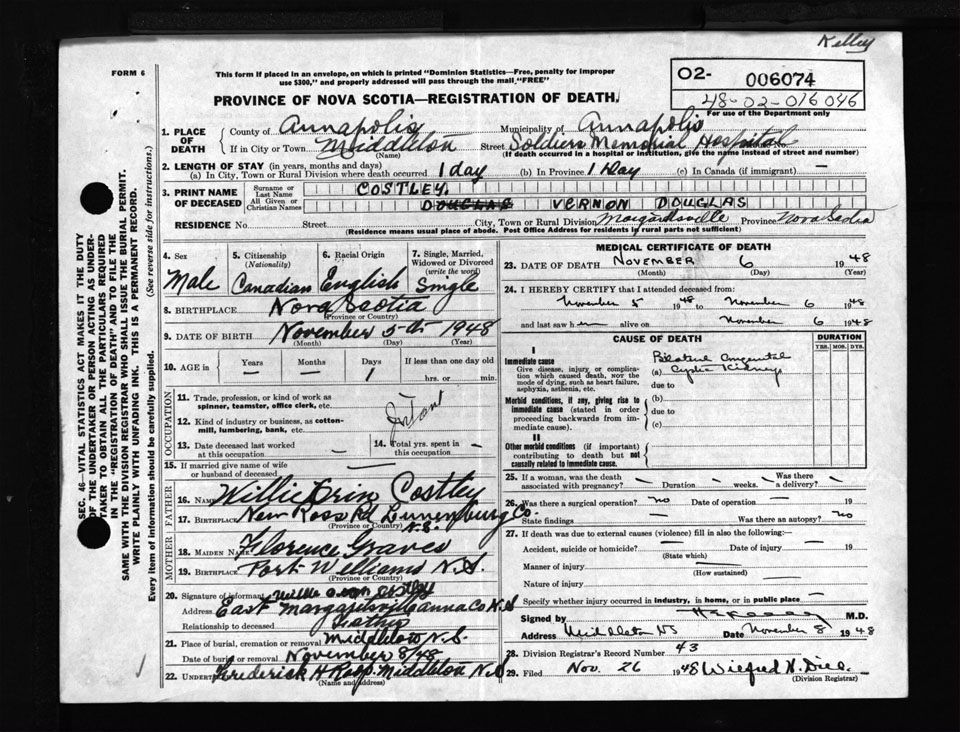 Kelley
FORM 6
This form if placed in an envelope, on which is printed "Dominion Statistics—Free, penalty for improper
use $300," and properly addressed will pass through the mail "FREE"
PROVINCE OF NOVA SCOTIA—REGISTRATION OF DEATH.
02- 006074
48-02-016046
For use of the Department only
1. PLACE OF DEATH
County of Annapolis Municipality of Annapolis
If in City or Town Middleton Street Soldiers Memorial Hospital
(Name) (If death occurred in a hospital or institution, give the name instead of street and number)
2. LENGTH OF STAY (in years, months and days)
(a) In City, Town or Rural Division where death occurred 1 day (b) In Province 1 Day (c) In Canada (if immigrant) —
3. PRINT NAME OF DECEASED
Surname or Last Name COSTLEY.
All Given or Christian Names DOUGLAS VERNON DOUGLAS
RESIDENCE No. Street City, Town or Rural Division Margaretsville Province Nova Scotia
(Residence means usual place of abode. Post Office Address for residents in rural parts not sufficient)
4. Sex Male
5. Citizenship (Nationality) Canadian
6. Racial Origin English
7. Single, Married, Widowed or Divorced (write the word) Single
8. BIRTHPLACE Nova Scotia
(Province or Country)
9. DATE OF BIRTH November 5th 1948
(Month) (Day) (Year)
10. AGE in Years — Months — Days 1 If less than one day old hrs. or min.
OCCUPATION
11. Trade, profession, or kind of work as spinner, teamster, office clerk, etc. —
Infant
12. Kind of industry or business, as cotton-mill, lumbering, bank, etc.
13. Date deceased last worked at this occupation —
14. Total yrs. spent in this occupation —
15. If married give name of wife or husband of deceased —
FATHER
16. NAME Willie Orin Costley
17. BIRTHPLACE New Ross Rd Lunenburg Co. N.S.
(Province or Country)
MOTHER
18. MAIDEN NAME Florence Graves
19. BIRTHPLACE Port Williams N.S.
(Province or Country)
20. Signature of informant Willie Orin Costley
Address East Margaretsville Anna Co N.S
Relationship to deceased Father
21. Place of burial, cremation or removal Middleton N.S.
Date of burial or removal November 8/48
22. UNDERTAKER Frederick H Roop Middleton N.S
(Name and address)
MEDICAL CERTIFICATE OF DEATH
23. DATE OF DEATH NOVEMBER 6 1948
(Month) (Day) (Year)
24. I HEREBY CERTIFY that I attended deceased from:
November 5 1948 to November 6 1948
and last saw him alive on November 6 1948
CAUSE OF DEATH
DURATION
YRS. MOS. DYS.
I
Immediate cause
Give disease, injury or complication which caused death, NOT the mode of dying, such as heart failure, asphyxia, asthenia, etc.
Bilateral Congenital
(a) Cystic Kidneys
due to
Morbid conditions, if any, giving rise to immediate cause (stated in order proceeding backwards from immediate cause).
(b)
due to
(c)
II
Other morbid conditions (if important) contributing to death but not causally related to immediate cause.
25. If a woman, was the death associated with pregnancy? — Duration — weeks. Was there a delivery? —
26. Was there a surgical operation? no Date of operation — 19
State findings — Was there an autopsy? no
27. If death was due to external causes (violence) fill in also the following:
Accident, suicide or homicide? — Date of injury — 19
(State which)
Manner of injury —
(How sustained)
Nature of injury —
Specify whether injury occurred in industry, in home, or in public place —
Signed by M.D.
Address Middleton NS Date November 8 1948
28. Division Registrar's Record Number 43
29. Filed Nov. 26 1948 Wilfred H. Dill.
(Division Registrar)
SEC. 46—VITAL STATISTICS ACT MAKES IT THE DUTY
OF THE UNDERTAKER OR PERSON ACTING AS UNDER-
TAKER TO OBTAIN ALL THE PARTICULARS REQUIRED
IN THE "REGISTRATION OF DEATH" AND TO FILE THE
SAME WITH THE DIVISION REGISTRAR WHO SHALL ISSUE THE BURIAL PERMIT.
WRITE PLAINLY WITH UNFADING INK. THIS IS A PERMANENT RECORD.
Every item of information should be carefully supplied. (See reverse side for instructions.)